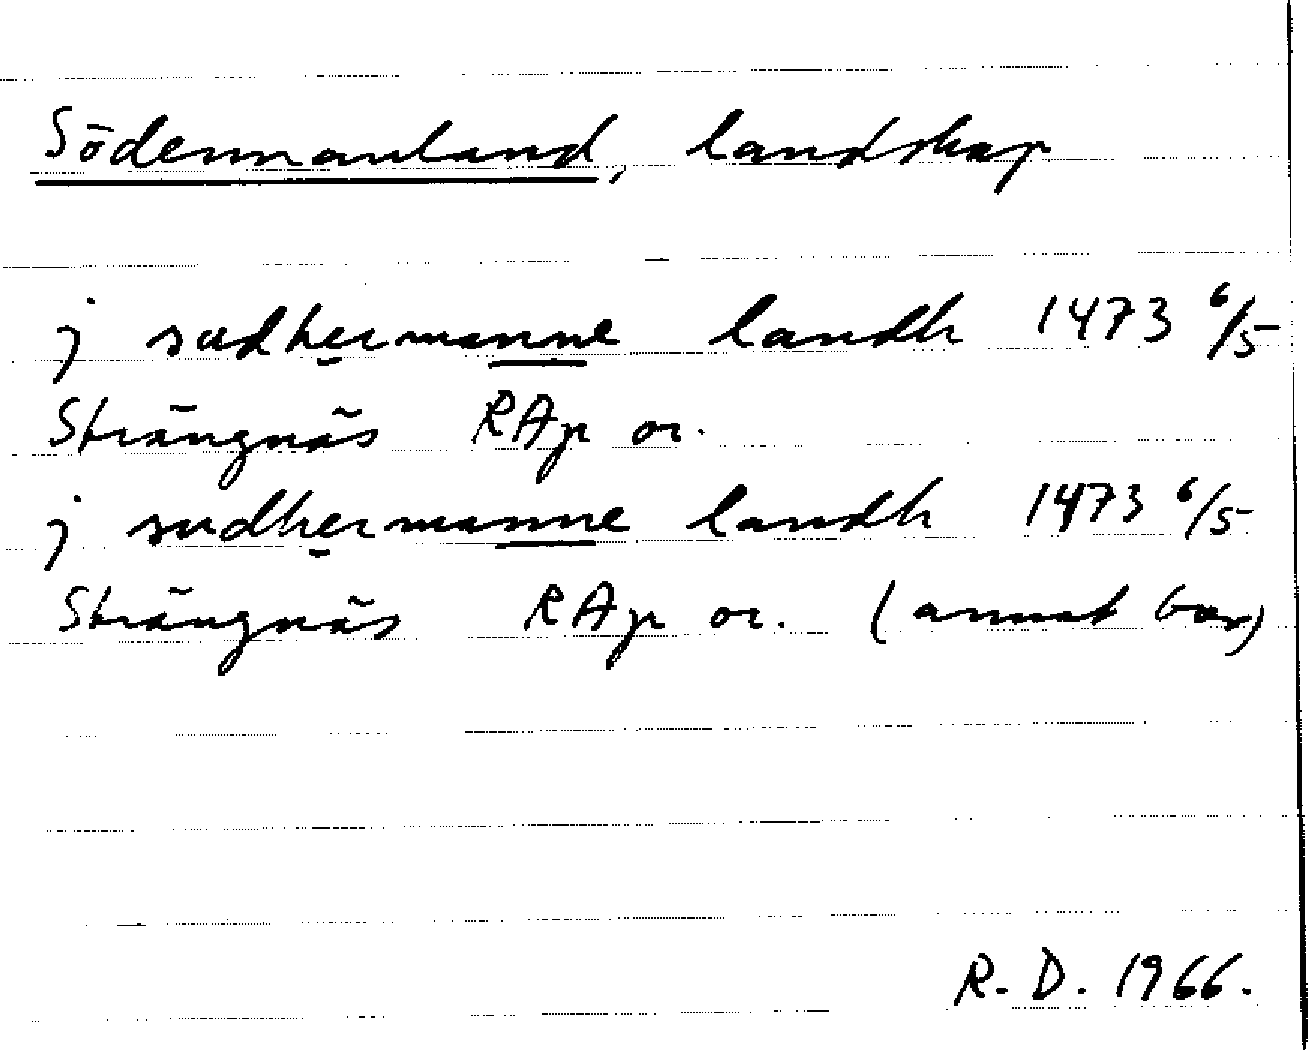 Södermanland, landskap
j sudhermanne landh 1473 6/5
Strängnäs RAp or.
j sudhermanne landh 1473 6/5
Strängnäs RAp or. (annat brev)
R. D. 1966.